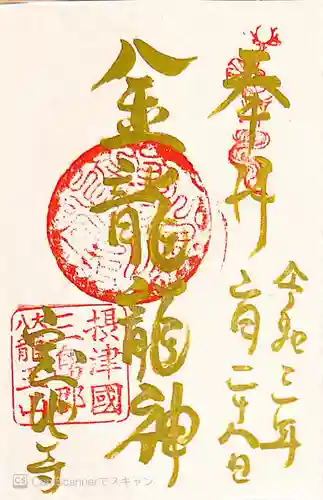 奉拝
令和三年
六月二十八日
金龍龍神
摂津國
三島郡
宝池寺
CS CamScannerでスキャン